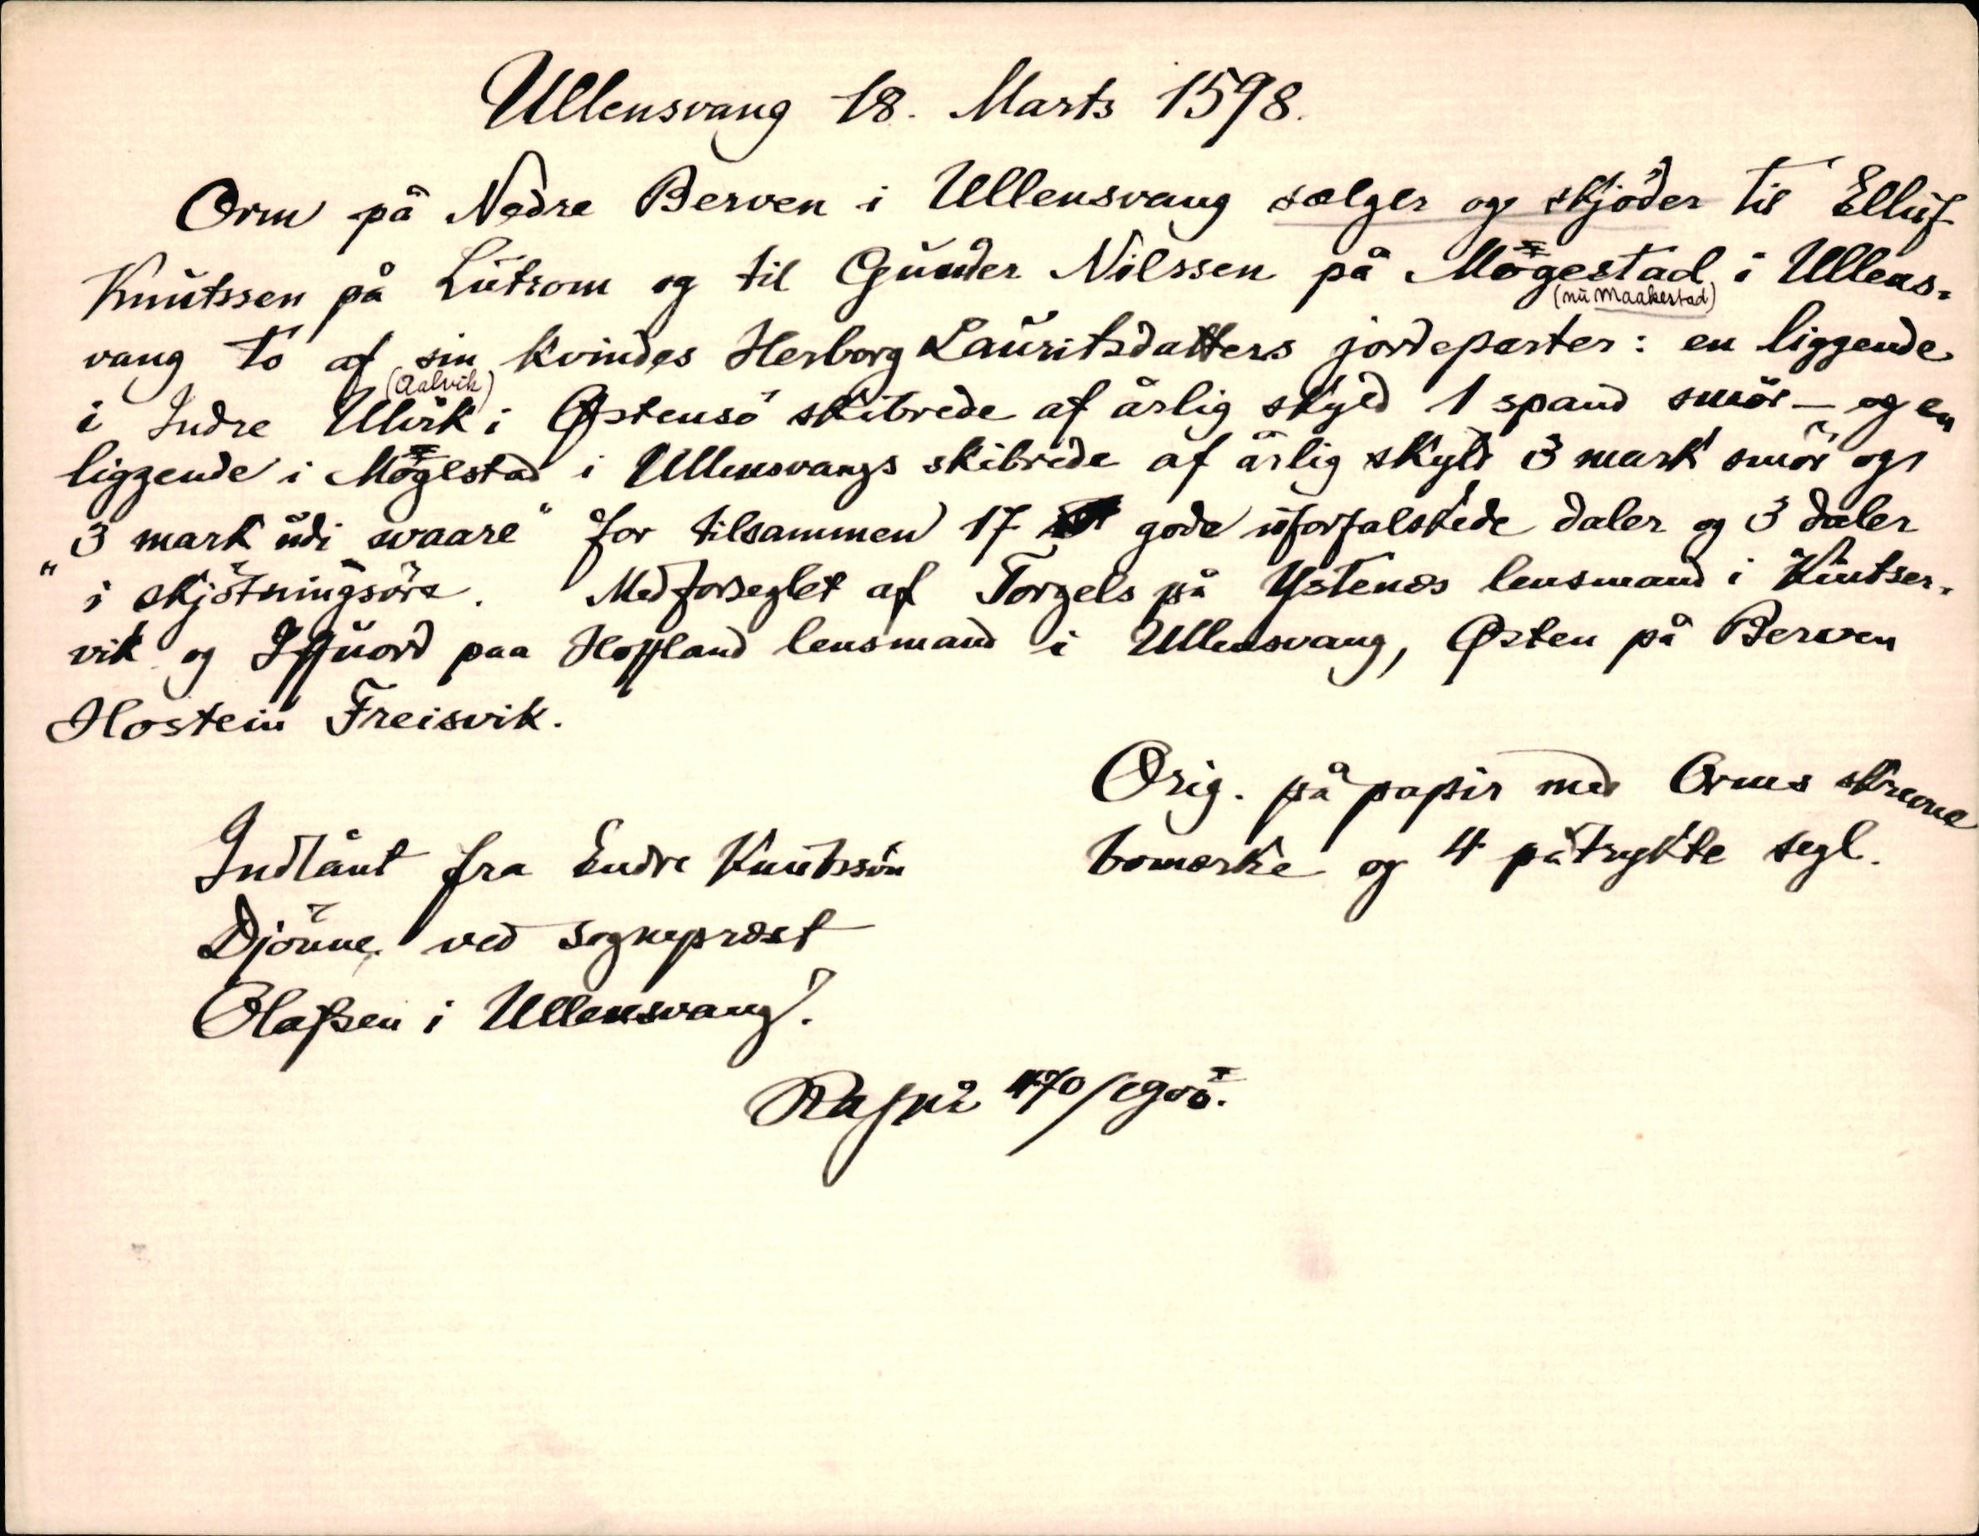 Ullensvang 18. Marts 1598.
Orm på Nedre Berven i Ullensvang sælger og skjöder til Elluf
Knutssen på Lutrom og til Gunder Nilssen på Mögestad i Ullens-
(nu Maakestad)
vang to af sin kvindes Herborg Lauritsdatters jordeparter: en liggende
(Aalvik)
i Indre Ulvik i Østensö skibrede af årlig skyld 1 spand smör – og en
liggende i Mögestad i Ullensvangs skibrede af årlig skyld 3 mark smör og
"3 mark udi waare" for tilsammen 17 gode uforfalskede daler og 3 daler
"i skjötningsöre. Medforseglet af Torgels på Ystenes lensmand i Kintser-
vik og Iffuord paa Hoffland lensmand i Ullensvang, Østen på Berven
Hostein Freisvik.
Orig. på papir med Orms skrevne
bomerke og 4 påtrykte segl.
Indlånt fra Endre Knutssön
Djönne ved sogneprest
Olafsen i Ullensvang.